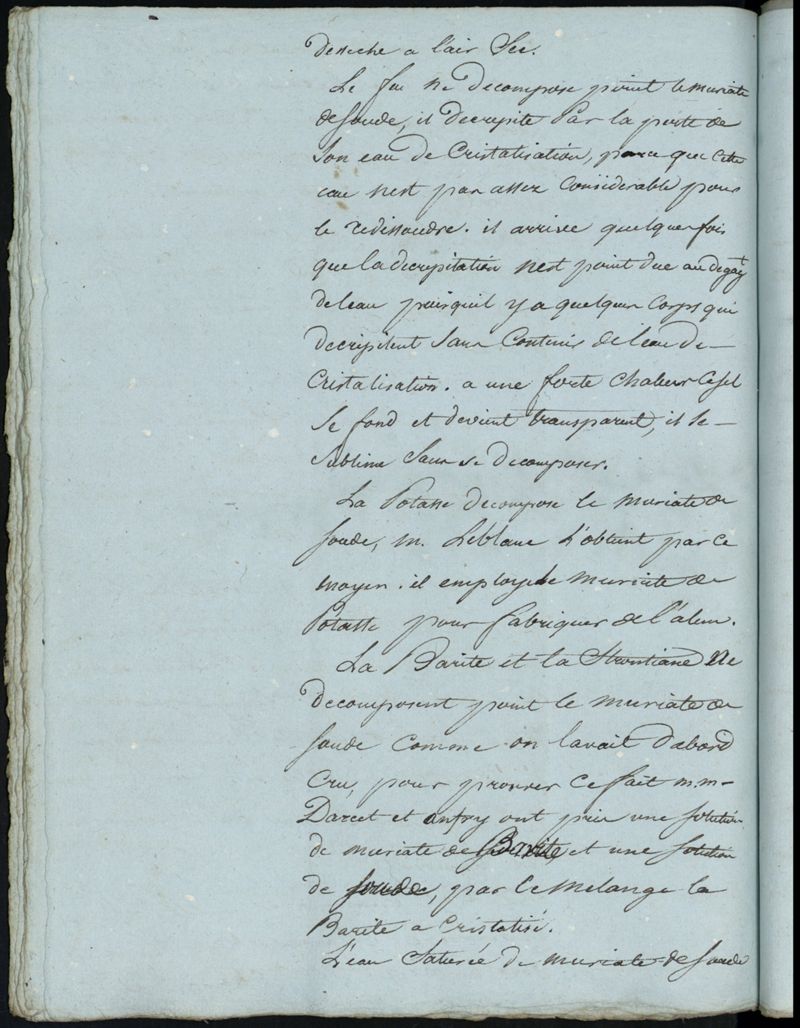 desseche a l'air Sec.
Le feu ne decompose point le muriate
de Soude, il decrepite Par la perte de
Son eau de Cristalisation, parce que cette
eau nest pas assez Considerable pour
le redissoudre. il arrive quelquefois
que la decrepitation nest point due au degagt
de leau puisquil y a quelques Corps qui
decrepitent Sans Contenir de leau de
Cristalisation. a une forte chaleur Ce Sel
Se fond et devient transparent, il Se
Sublime Sans Se decomposer.
La Potasse decompose le muriate de
Soude, m. Leblanc l'obtient par Ce
moyen. il employe le muriate de
Potasse pour fabriquer de l'alun.
La Barite et la Strontiane Ne
decomposent point le muriate de
Soude Comme on lavait d'abord
Cru, pour prouver Ce fait m.m
Darcet et anfry ont pris une Solution
de muriate de Barite et une Solution
de Soude, par le melange la
Barite a Cristalisé.
L'eau Saturée de muriate de Soude